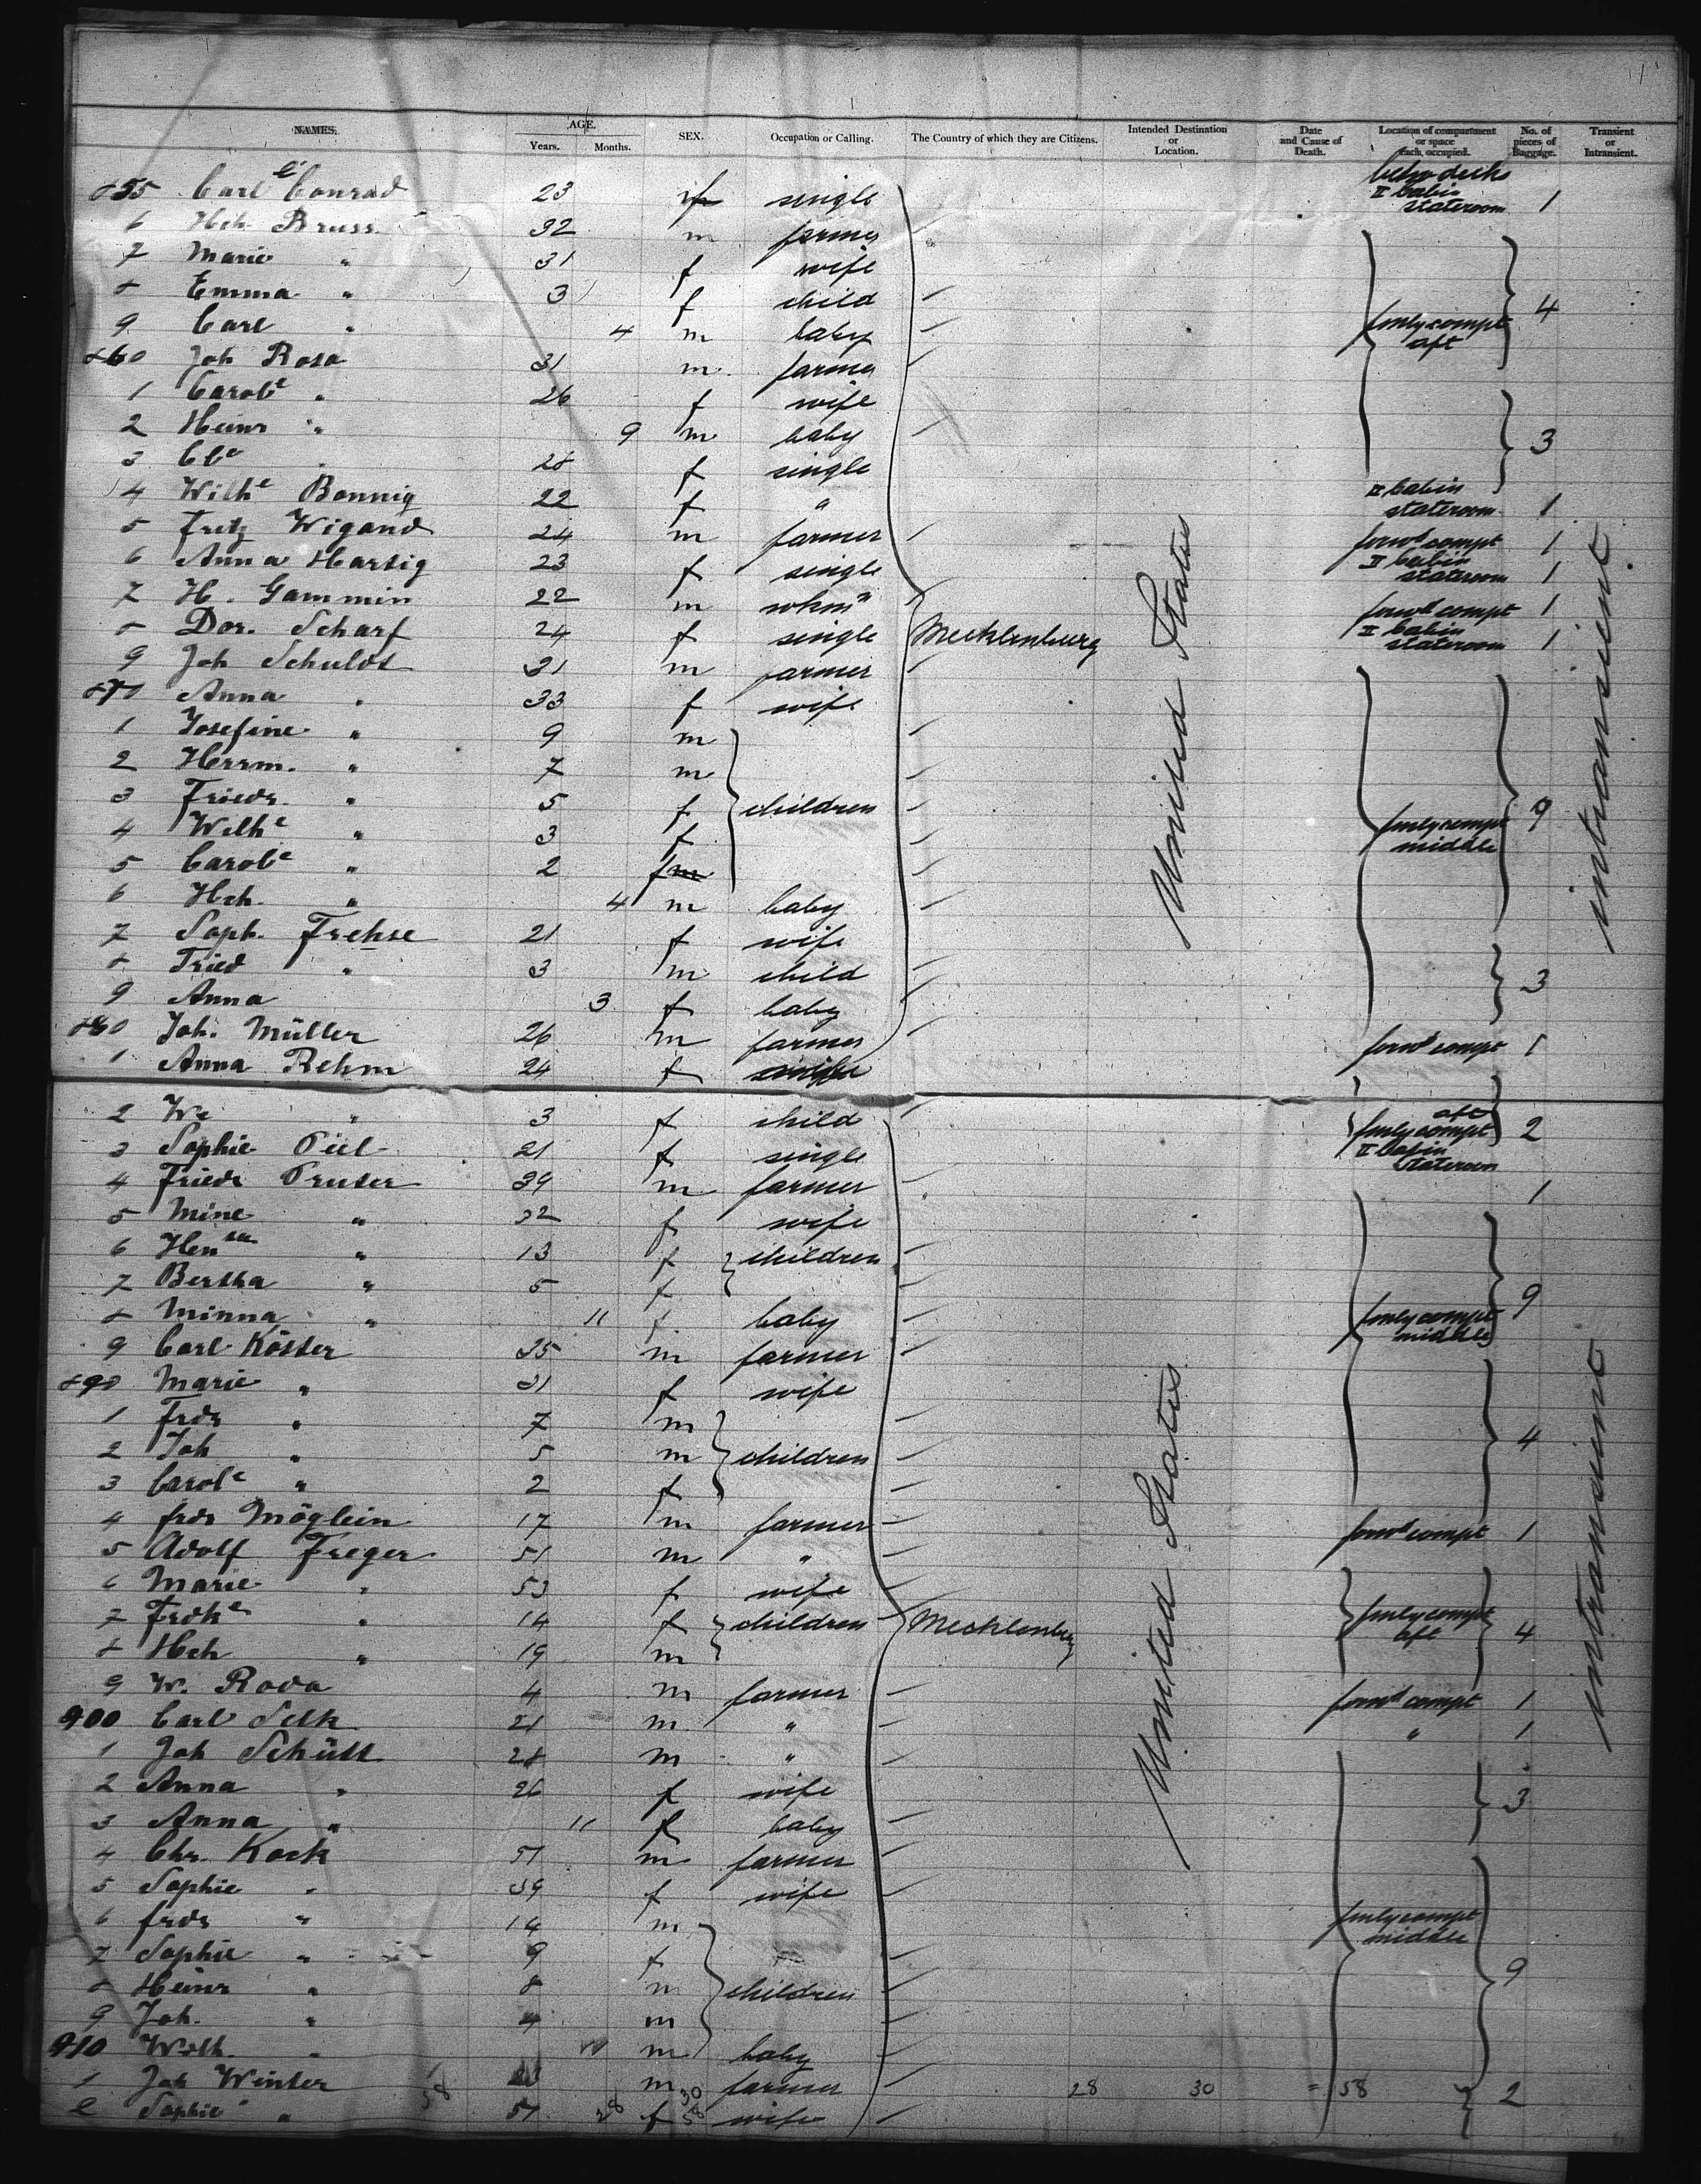 NAMES. AGE. SEX. Occupation or Calling. The Country of which they are Citizens. Intended Destination or Location. Date and Cause of Death. Location of compartment or space each occupied. No. of pieces of Baggage. Transient or Intransient.
Years. Months.
855 Carl Conrad 23 single below decks II Cabin stateroom 1
6 Hch. Bruss 32 m farmer
7 Marie " 31 f wife
8 Emma " 3 f child
9 Carl " 4 m baby fmly compt aft 4
860 Joh Rosa 31 m farmer
1 Carole " 26 f wife
2 Heinr " 9 m baby 3
3 28 f single
4 Wilhe Bonnig 22 f " II Cabin stateroom 1
5 Fritz Wigand 24 m farmer forwd compt 1
6 Anna Hartig 23 f single II Cabin stateroom 1
7 H. Gammin 22 m forwd compt 1
8 Dor. Scharf 24 f single Mecklenburg United States II Cabin stateroom 1 intransient
9 Joh Schuldt 31 m farmer
870 Anna " 33 f wife
1 Josefine " 9 m
2 Herrm. " 7 m
3 Friedr. " 5 f children 9
4 Wilhe " 3 f fmly compt middle
5 Carole " 2 f
6 Hch. " 4 m baby
7 Soph. Frehse 21 f wife
8 Fried " 3 m child 3
9 Anna 3 f baby
880 Joh. Müller 26 m farmer forwd compt 1
1 Anna Rehm 24 f
2 We " 3 f child aft fmly compt 2
3 Sophie Piel 21 f single II Cabin stateroom
4 Friedr Pruter 39 m farmer 1
5 Mine " 32 f wife
6 Hen " 13 f children
7 Bertha " 5 f 9
8 Minna " 11 f baby fmly compt middle
9 Carl Köster 35 m farmer
890 Marie " 31 f wife
1 Frdr " 7 m
2 Joh " 5 m children 4
3 Carole " 2 f
4 frdr Möglein 17 m farmer forwd compt 1
5 Adolf Freger 51 m "
6 Marie " 53 f wife
7 Frdke " 14 f children Mecklenburg United States fmly compt aft 4 intransient
8 Hch " 19 m
9 W. Rova 4 m farmer forwd compt 1
900 Carl Selk 21 m " " 1
1 Joh Schütt 28 m "
2 Anna " 26 f wife 3
3 Anna " 11 f baby
4 Chr. Kock 51 m farmer
5 Sophie " 39 f wife
6 frdr " 14 m fmly compt middle
7 Sophie " 9 f 9
8 Heinr " 8 m children
9 Joh. " 4 m
910 Wilh. " m baby
1 Joh Winter m farmer 28 30 = 58 2
2 Sophie " 51 f wife
58 28 30 58